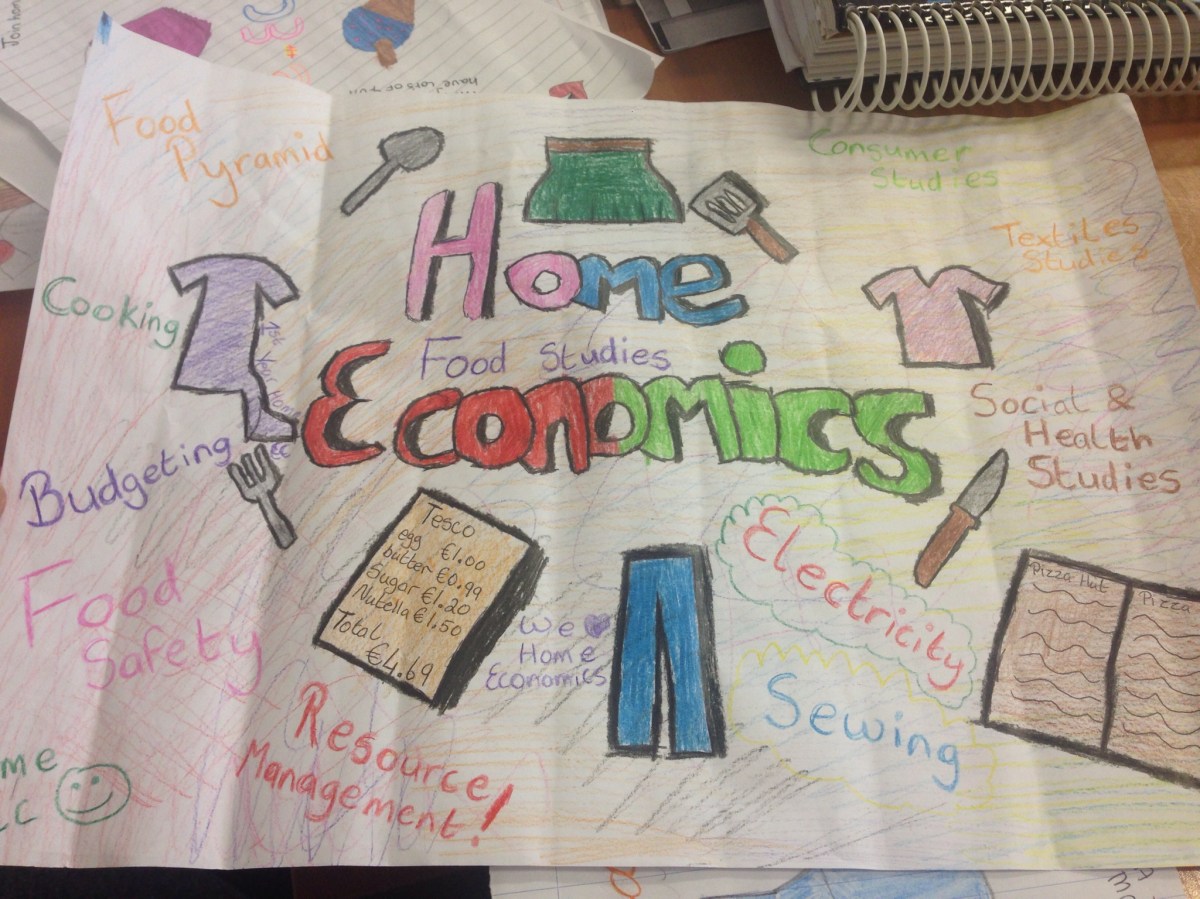 Jonhon
have lots of fun
Food
Pyramid
Consumer
Studies
Textiles
Studies
Home
Food Studies
Economics
Cooking
1st Year Home
EC
Social &
Health
Studies
Budgeting
Tesco
egg €1.00
butter €0.99
Sugar €1.20
Nutella €1.50
Total
€4.69
Electricity
Pizza Hut
Pizza
Food
Safety
We
Home
Economics
Sewing
Resource
Management!
me